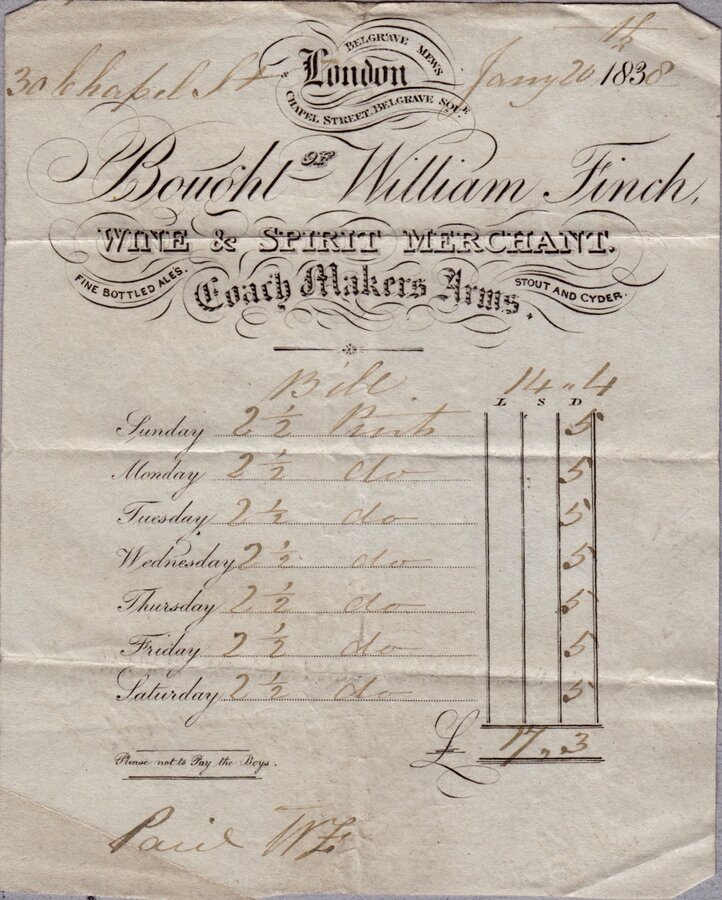 BELGRAVE MEWS
30 Chapel St London Jany 20 1838
& CHAPEL STREET, BELGRAVE SQUE.
Bought OF William Finch,
WINE & SPIRIT MERCHANT.
FINE BOTTLED ALES. Coach Makers Arms. STOUT AND CYDER.
Bill 14 " 4
L S D
Sunday 2 1/2 Pints 5
Monday 2 1/2 do 5
Tuesday 2 1/2 do 5
Wednesday 2 1/2 do 5
Thursday 2 1/2 do 5
Friday 2 1/2 do 5
Saturday 2 1/2 do 5
£ 17 " 3
Please not to Pay the Boys.
Paid WF